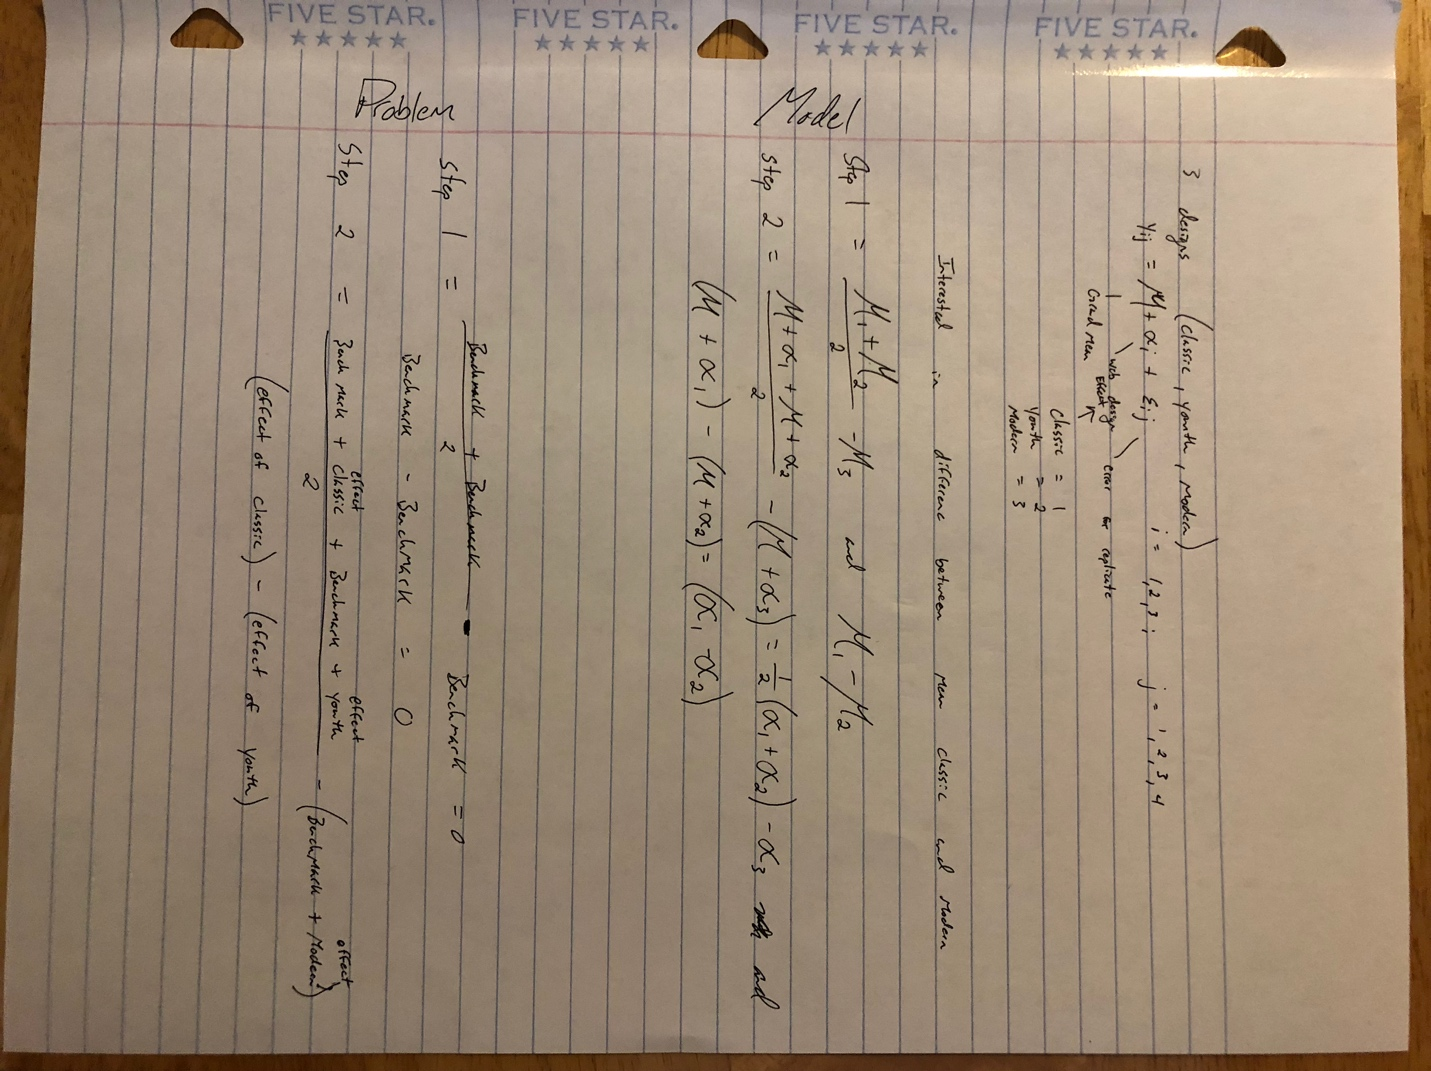 FIVE STAR.
★★★★★
FIVE STAR.
★★★★★
FIVE STAR.
★★★★★
FIVE STAR.
★★★★★
3 designs (classic, youth, modern)
Yij = M + αi + εij i = 1,2,3; j = 1,2,3,4
Grand Mean
web design Effect
error or replicate
classic = 1
Youth = 2
Modern = 3
Interested in difference between mean classic and modern
Model
Step 1 = (M1 + M2)/2 - M3 and M1 - M2
Step 2 = (M + α1 + M + α2)/2 - (M + α3) = 1/2 (α1 + α2) - α3 and
(M + α1) - (M + α2) = (α1 - α2)
Problem
Step 1 = (Benchmark + Benchmark)/2 - Benchmark = 0
Benchmark - Benchmark = 0
Step 2 = (Benchmark + classic effect + Benchmark + youth effect)/2 - (Benchmark + Modern effect)
(effect of classic) - (effect of youth)